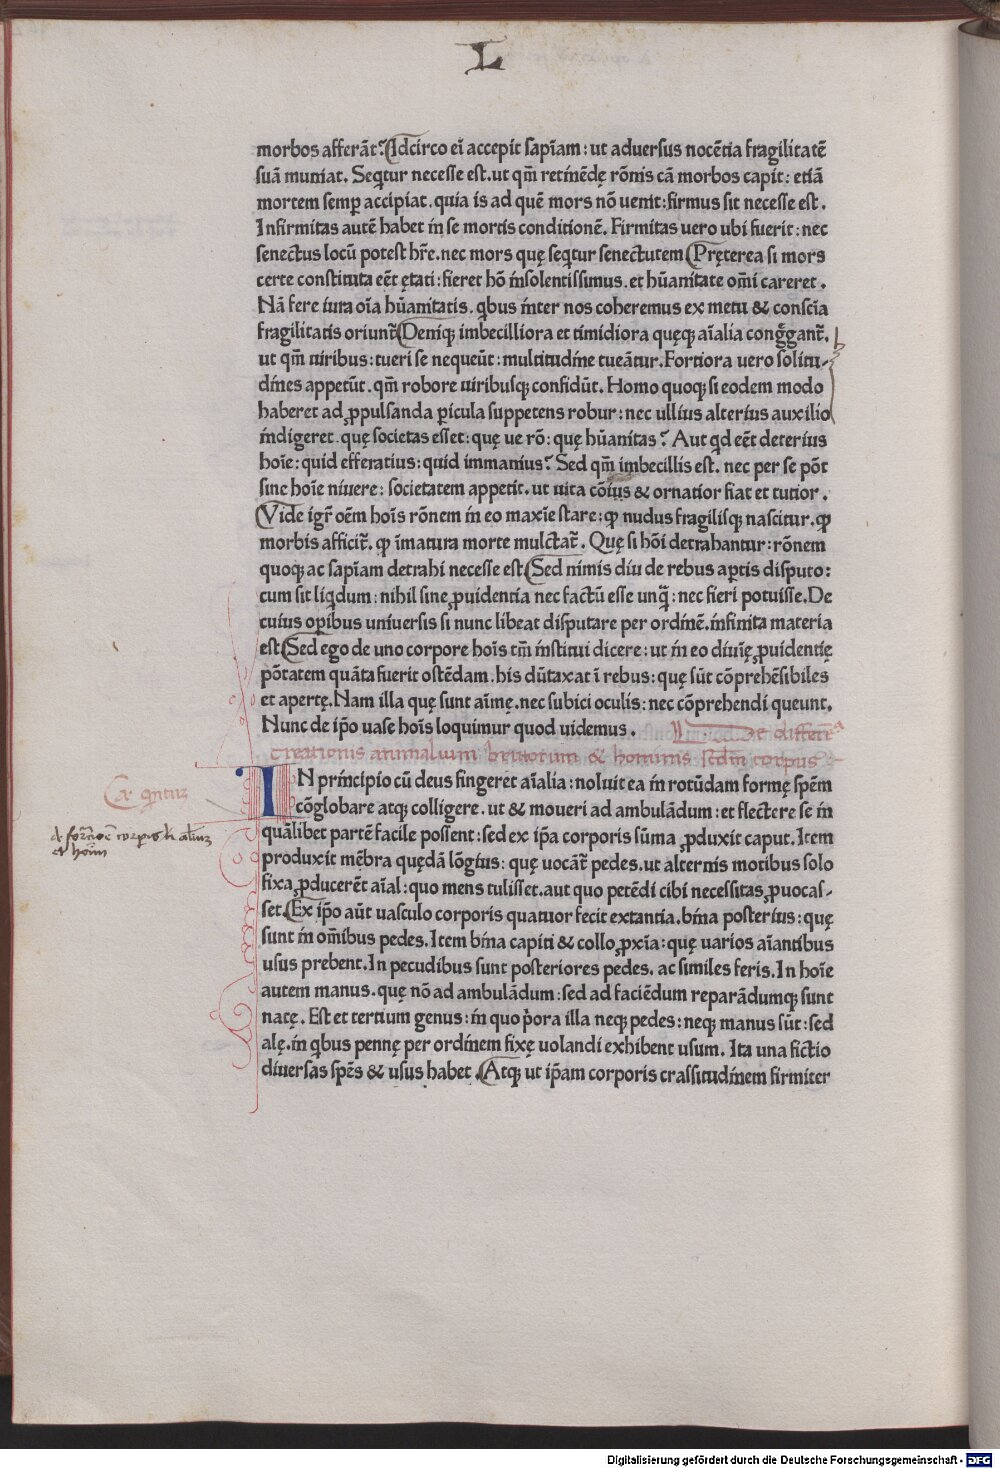 L
morbos afferãt? Idcirco ei accepit sapīam: ut aduersus nocẽtia fragilitatẽ
suã muniat. Seqtur necesse est. ut qm̃ retinẽdę rõnis cã morbos capit: etiã
mortem semꝑ accipiat. quia is ad quẽ mors nõ uenit: firmus sit necesse est.
Infirmitas autẽ habet in se mortis conditionẽ. Firmitas uero ubi fuerit: nec
senectus locũ potest hr̃e. nec mors quę seqtur senectutem Pręterea si mors
certe constituta eẽt ętati: fieret hõ insolentissimus. et hũanitate om̃i careret.
Nã fere iura oĩa hũanitatis. qbus inter nos coheremus ex metu & conscĩa
fragilitatis oriunt̃ Deniqꝫ imbecilliora et timidiora quęqꝫ aĩalia congg̃ant̃.
ut qm̃ uiribus: tueri se nequeũt: multitudine tueãtur. Fortiora uero solitu-
dines appetũt. qm̃ robore uiribusqꝫ confidũt. Homo quoqꝫ si eodem modo
haberet ad ꝓpulsanda ꝑicula suppetens robur: nec ullius alterius auxilio
indigeret. quę societas esset: quę ue rõ: quę hũanitas? Aut qd eẽt deterius
hoĩe: quid efferatius: quid immanius? Sed qm̃ imbecillis est. nec per se põt
sine hoĩe uiuere: societatem appetit. ut uita cõius & ornatior fiat et tutior.
Vide igr̃ oẽm hoĩs rõnem in eo maxĩe stare: ꝙ nudus fragilisqꝫ nascitur. ꝙ
morbis afficit̃. ꝙ ĩmatura morte mulctat̃. Quę si hõi detrahantur: rõnem
quoqꝫ ac sapĩam detrahi necesse est Sed nimis diu de rebus aꝑtis disputo:
cum sit liqdum: nihil sine ꝓuidentia nec factũ esse unq̃: nec fieri potuisse. De
cuius oꝑibus uniuersis si nunc libeat disputare per ordinẽ. infinita materia
est Sed ego de uno corpore hoĩs tm̃ institui dicere: ut in eo diuĩę ꝓuidentię
põtatem quãta fuerit ostẽdam. his dũtaxat ĩ rebus: quę sũt cõprehẽsibiles
et apertę. Nam illa quę sunt aĩmę. nec subici oculis: nec cõprehendi queunt.
Nunc de ip̃o uase hoĩs loquimur quod uidemus. De differẽ͂a
creationis animalium brutorum & hominis scdm̃ corpus
IN principio cũ deus fingeret aĩalia: noluit ea in rotũdam formę spẽm
cõglobare atqꝫ colligere. ut & moueri ad ambulãdum: et flectere se in
quãlibet partẽ facile possent: sed ex ip̃a corporis sũma ꝓduxit caput. Item
produxit mẽbra quędã lõgius: quę uocãt̃ pedes. ut alternis motibus solo
fixa ꝓducerẽt aĩal: quo mens tulisset. aut quo petẽdi cibi necessitas ꝓuocas-
set. Ex ip̃o aũt uasculo corporis quatuor fecit extantia. bina posterius: quę
sunt in om̃ibus pedes. Item bina capiti & collo ꝓxĩa: quę uarios aĩantibus
usus prebent. In pecudibus sunt posteriores pedes. ac similes feris. In hoĩe
autem manus. quę nõ ad ambulãdum: sed ad faciẽdum reparãdumqꝫ sunt
natę. Est et tertium genus: in quo p̃ora illa neqꝫ pedes: neqꝫ manus sũt: sed
alę. in qbus pennę per ordinem fixę uolandi exhibent usum. Ita una fictio
diuersas spẽs & usus habet. Atqꝫ ut ip̃am corporis crassitudinem firmiter
Digitalisierung gefördert durch die Deutsche Forschungsgemeinschaft - DFG